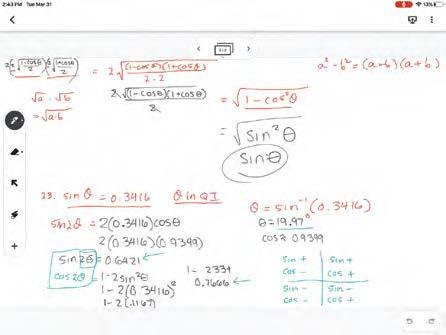 2:43 PM Tue Mar 31
13%
2(√(1-cosθ)/2)(√(1+cosθ)/2) = 2√(1-cosθ)(1+cosθ)/2·2
a² - b² = (a+b)(a+b)
√a · √b
= √a·b
2√(1-cosθ)(1+cosθ)/2
= √1 - cos²θ
= √sin²θ
sinθ
23. sinθ = 0.3416 θ in QI
θ = sin⁻¹(0.3416)
θ = 19.97°
cos≈ 0.9399
sin2θ = 2(0.3416)cosθ
2(0.3416)(0.9399)
sin2θ = 0.6421
cos2θ = 1-2sin²θ
1-2(0.3416)²
1-2(.1167)
1- 2334
0.7666
sin + sin +
cos - cos +
sin - sin -
cos - cos +